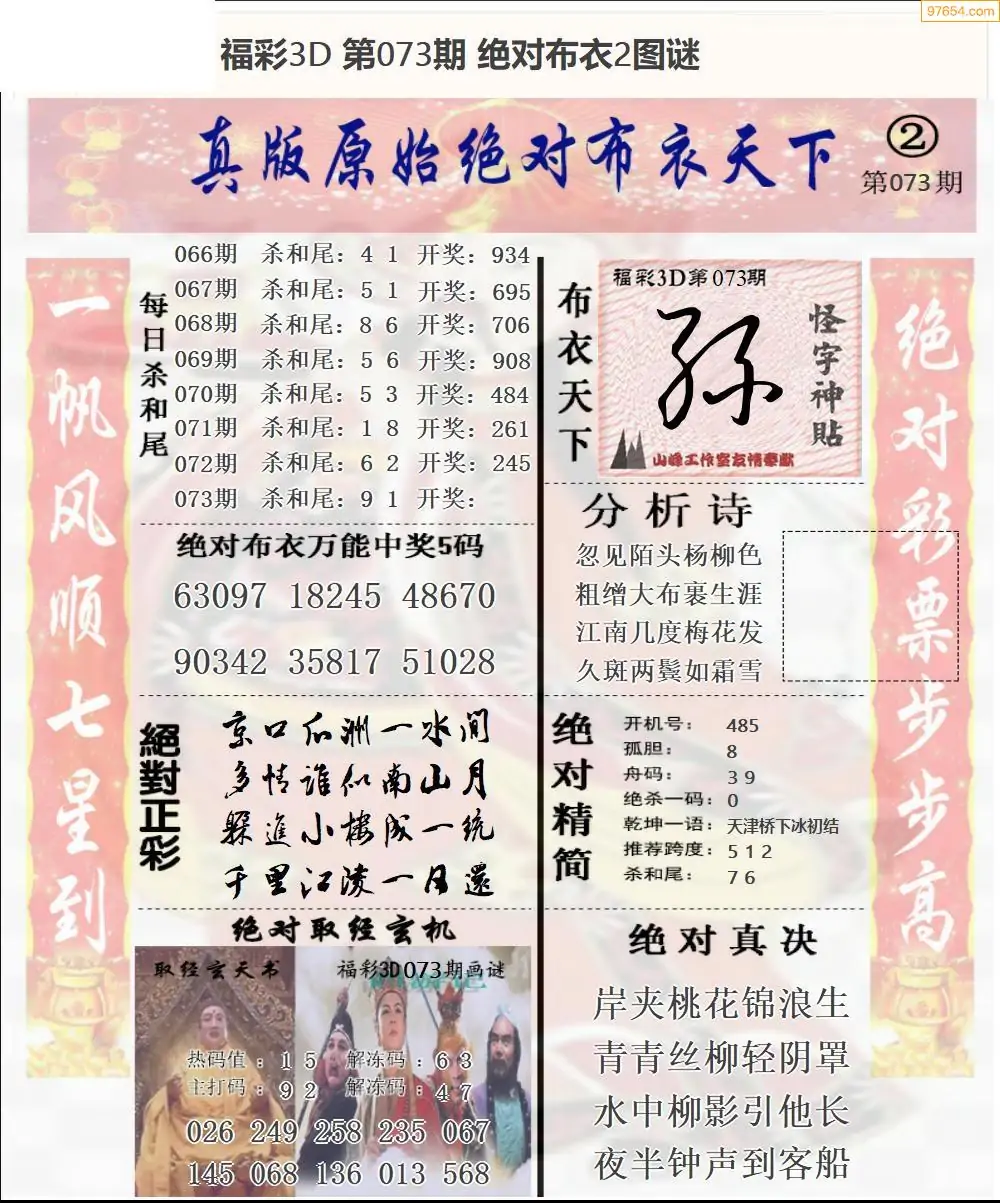 97654.com
福彩3D 第073期 绝对布衣2图谜
真版原始绝对布衣天下
②
第073期
一帆风顺七星到
每日杀和尾
066期 杀和尾：4 1 开奖：934
067期 杀和尾：5 1 开奖：695
068期 杀和尾：8 6 开奖：706
069期 杀和尾：5 6 开奖：908
070期 杀和尾：5 3 开奖：484
071期 杀和尾：1 8 开奖：261
072期 杀和尾：6 2 开奖：245
073期 杀和尾：9 1 开奖：
绝对布衣万能中奖5码
63097 18245 48670
90342 35817 51028
絕對正彩
京口瓜洲一水间
多情谁似南山月
躲進小楼成一统
千里江陵一日還
绝对取经玄机
取经玄天书
福彩3D073期画谜
热码值：1 5 解冻码：6 3
主打码：9 2 解冻码：4 7
026 249 258 235 067
145 068 136 013 568
布衣天下
福彩3D第073期
孙
怪字神貼
山峰工作室友情奉献
分析诗
忽见陌头杨柳色
粗缯大布裹生涯
江南几度梅花发
久斑两鬓如霜雪
绝对精简
开机号：485
孤胆：8
舟码：3 9
绝杀一码：0
乾坤一语：天津桥下冰初结
推荐跨度：5 1 2
杀和尾：7 6
绝对真决
岸夹桃花锦浪生
青青丝柳轻阴罩
水中柳影引他长
夜半钟声到客船
绝对彩票步步高